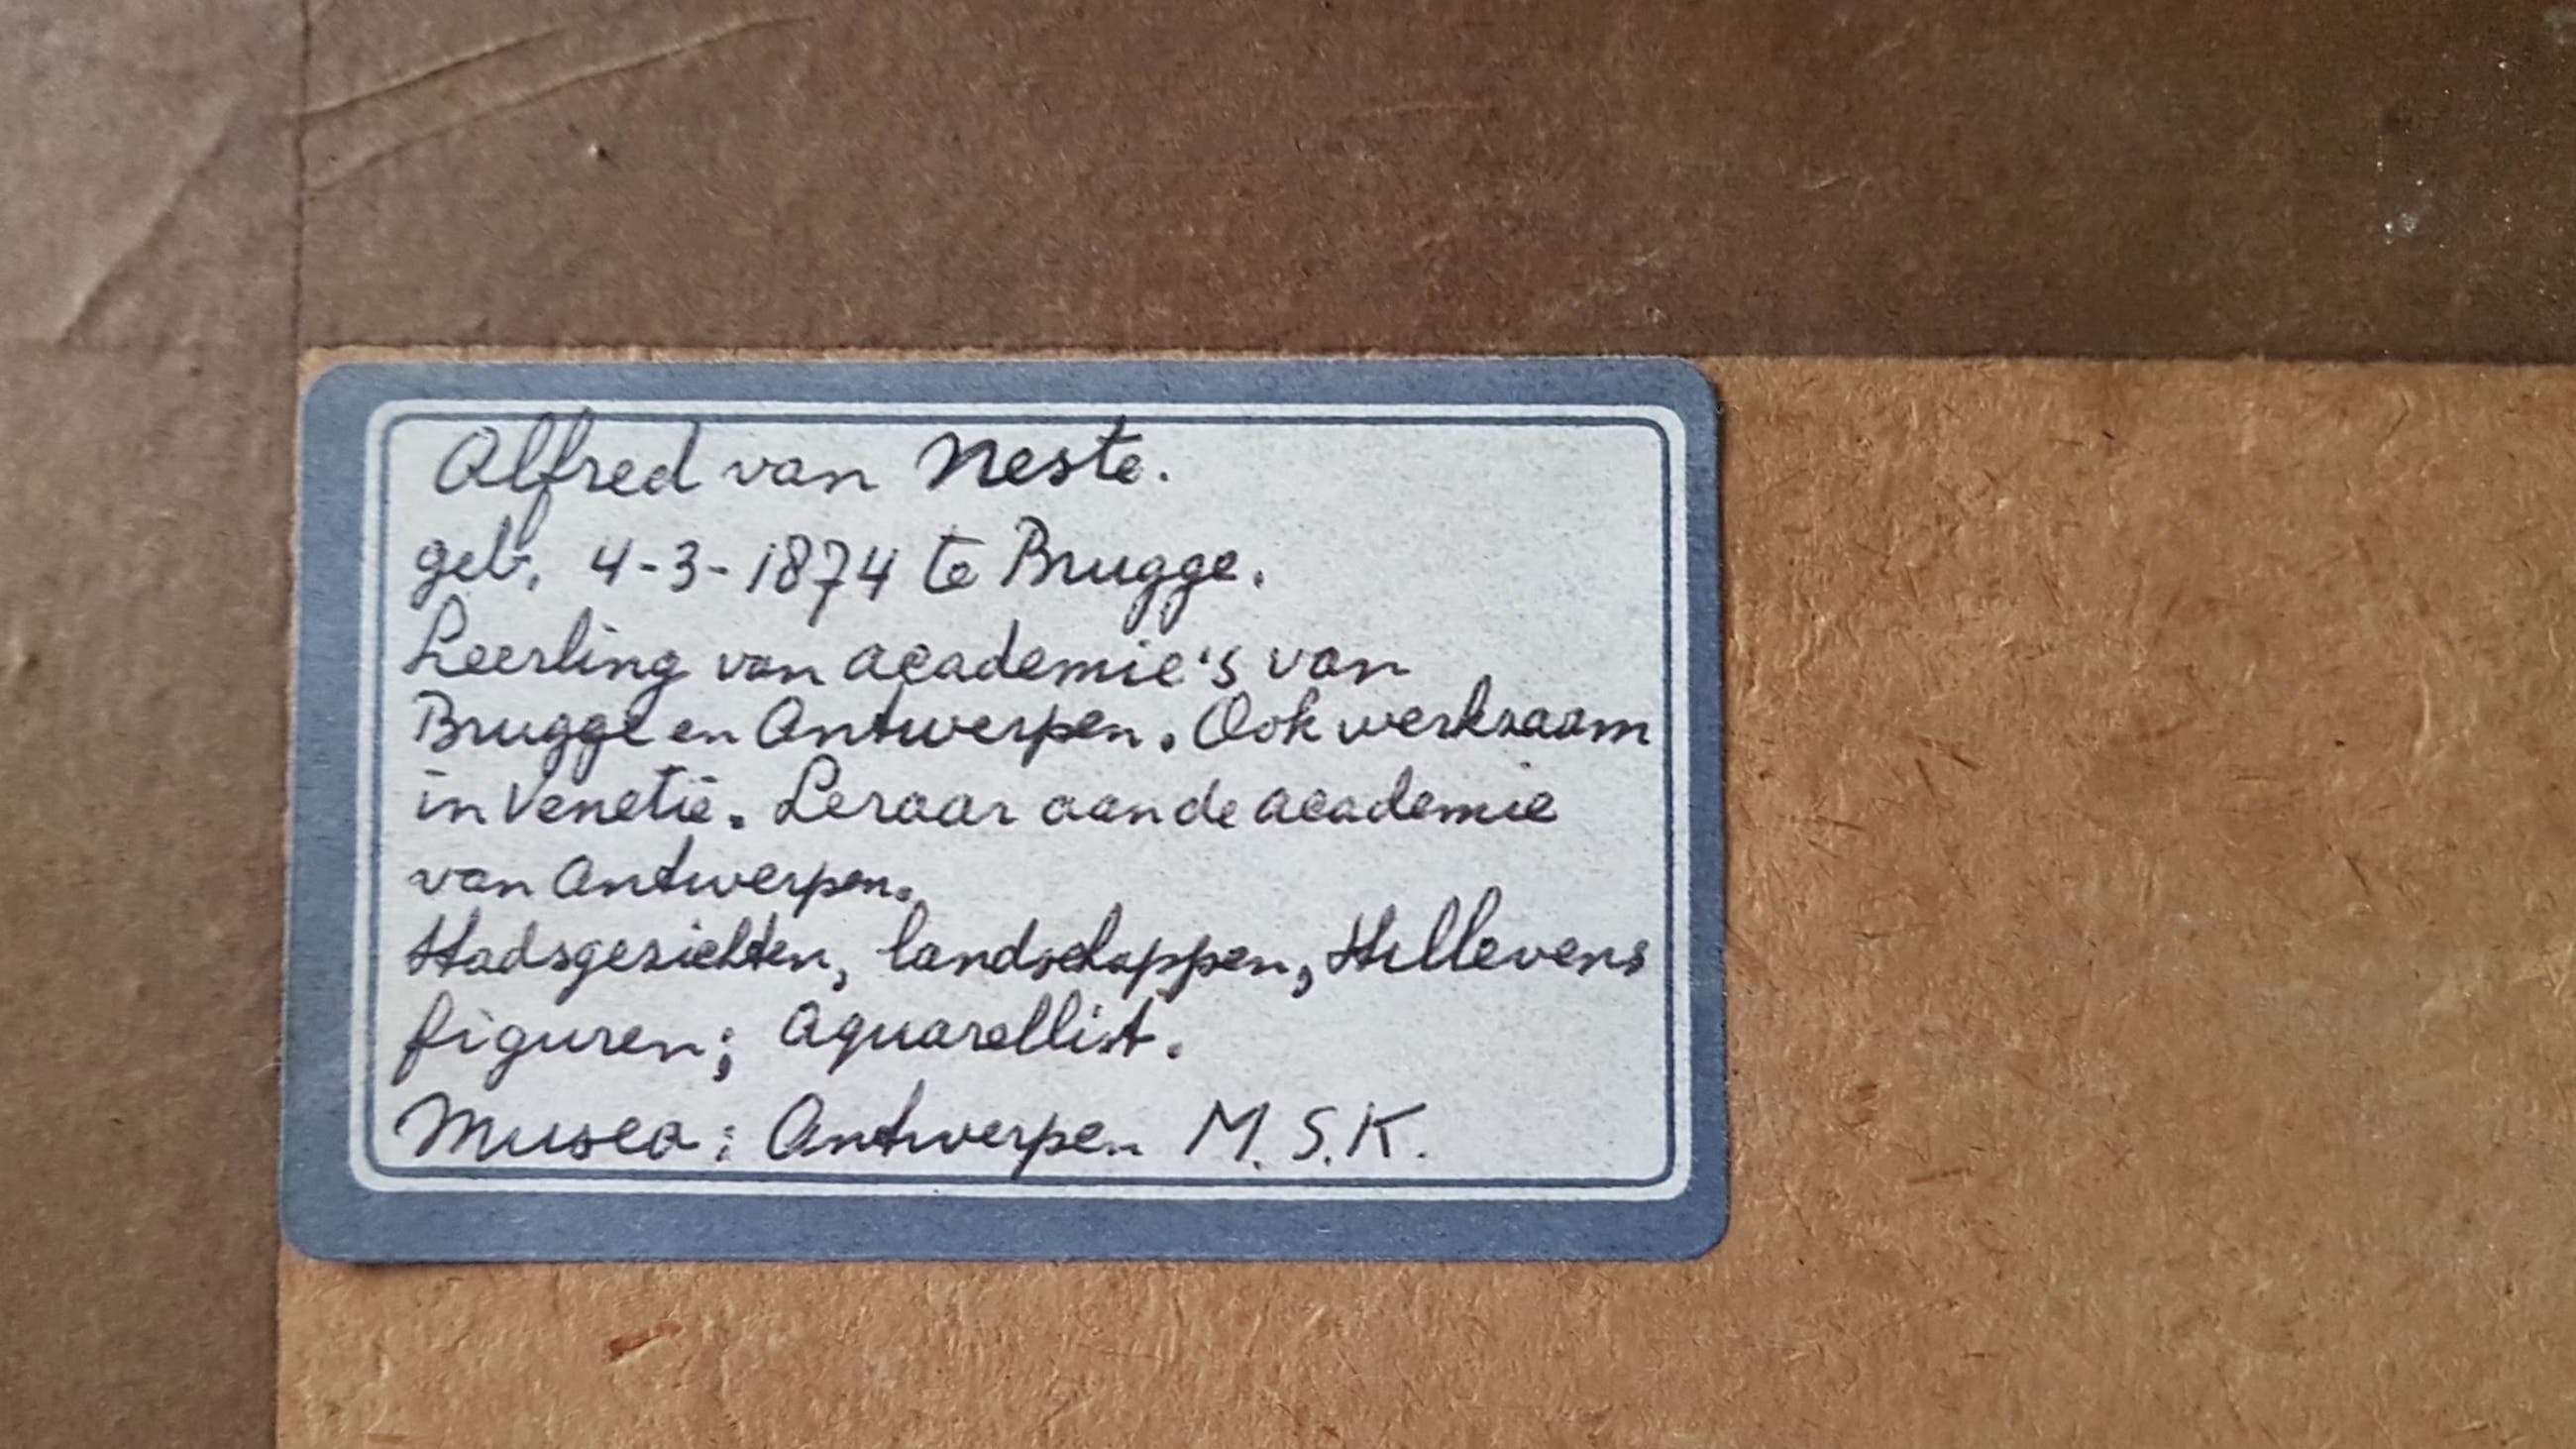 Alfred van Neste.
geb. 4-3-1874 te Brugge.
Leerling van academie's van
Brugge en Antwerpen. Ook werkzaam
in Venetië. Leraar aan de academie
van Antwerpen.
Stadsgezichten, landschappen, stillevens
figuren; Aquarellist.
Musea: Antwerpen M.S.K.